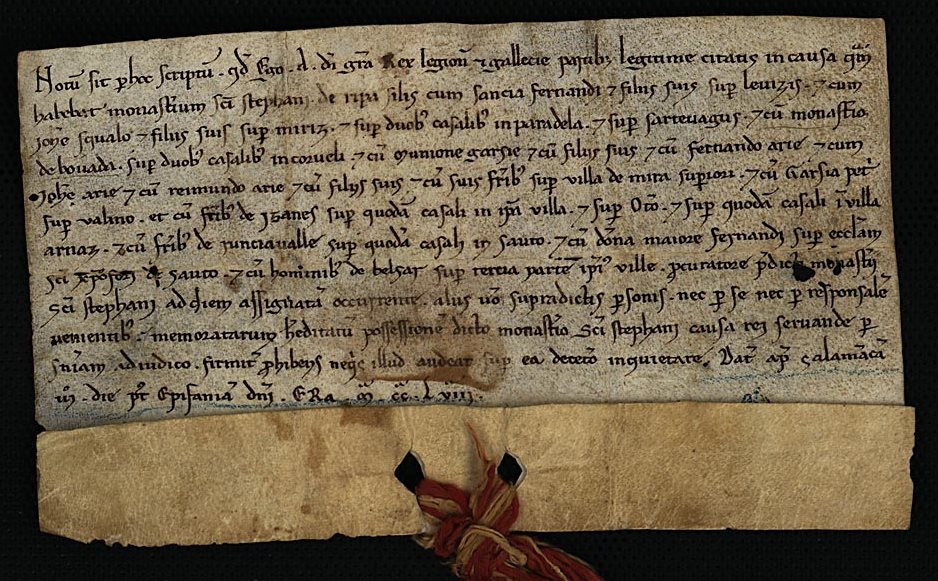 Notũ sit ꝑ hoc scriptũ . qd̃ Ego . A . dĩ grã Rex legionũ ⁊ gallecie partibȝ legitime citatis in causa q̃m
habebat monasterium sc̃i stephani de ripa silis cum sancia fernandi ⁊ filiis suis suꝑ levizis . ⁊ cum
iohe squalo ⁊ filiis suis suꝑ miriz . ⁊ suꝑ duobꝰ casalibꝰ in paradela . ⁊ suꝑ sartevagus . ⁊ cũ monastio
de bovada . suꝑ duobꝰ casalibꝰ in corveli . ⁊ cũ Munione garsie ⁊ cũ filiis suis ⁊ cũ fernando arie ⁊ cum
Iohe arie ⁊ cũ reimundo arie ⁊ cũ filiis suis ⁊ cũ suis fr̃ibꝰ suꝑ villa de mira suꝑiori . ⁊ cũ Garsia pet̃
suꝑ valino . et cũ fr̃ibꝰ de suꝑ quodã casali in ip̃a villa . ⁊ suꝑ Oto . ⁊ suꝑ quodã casali ĩ villa
arnaz . ⁊ cũ fr̃ibꝰ de runciavalle suꝑ quodã casali in sauto . ⁊ cũ dõna maiore fernandi suꝑ eccl̃am
sc̃i xp̃ofori de sauto . ⁊ cũ hominibꝰ de belsar suꝑ tercia partẽ ip̃iꝰ ville . ꝓcuratore p̃dicti monastii
Sc̃i stephani ad diem assignatã occurrente . aliis uo supradictis ꝑsonis . nec ꝑ se nec ꝑ responsalẽ
venientibꝰ . memoratarum h̃editatũ possessionẽ dicto monastio Sc̃i stephani causa rei servande ꝑ
sñiam adiudico . firmit̃ ꝓhibens neq̃s illud audeat suꝑ ea decetõ inquietare . Dat̃ ap̃ Salamãcã
iiiꝰ . die pꝰt Epifaniã dñi . ERa . M . CC . L viii .